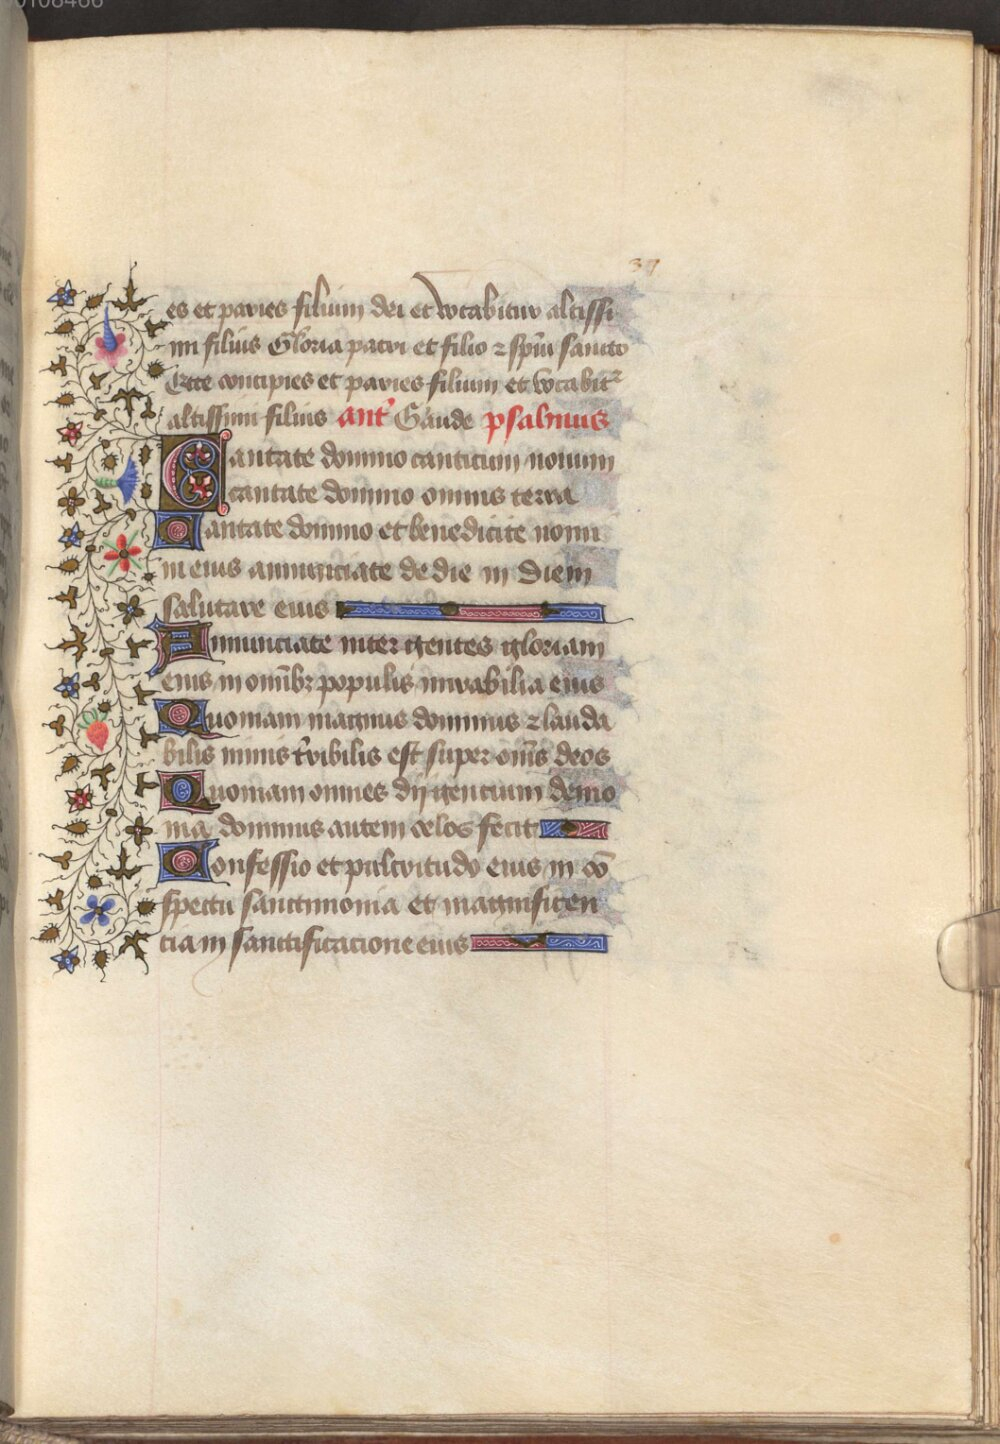 0108466
37
es et paries filium dei et vocabitur altissi
mi filius Gloria patri et filio ⁊ sp̄m sancto
Ecce concipies et paries filium et vocabit᷑
altissimi filius ant̄ Gaude psalmus
Cantate domino canticum nouum
cantate domino omnis terra
Cantate domino et benedicite nomi
ni eius annunciate de die in diem
salutare eius
Annunciate inter gentes gloriam
eius in om̄ibꝫ populis mirabilia eius
Quoniam magnus dominus ⁊ lauda
bilis nimis t̄ribilis est super om̄s deos
Quoniam omnes dij gentium demo
nia dominus autem celos fecit
Confessio et pulcritudo eius in cō
spectu sanctimonia et magnificen
cia in sanctificacione eius